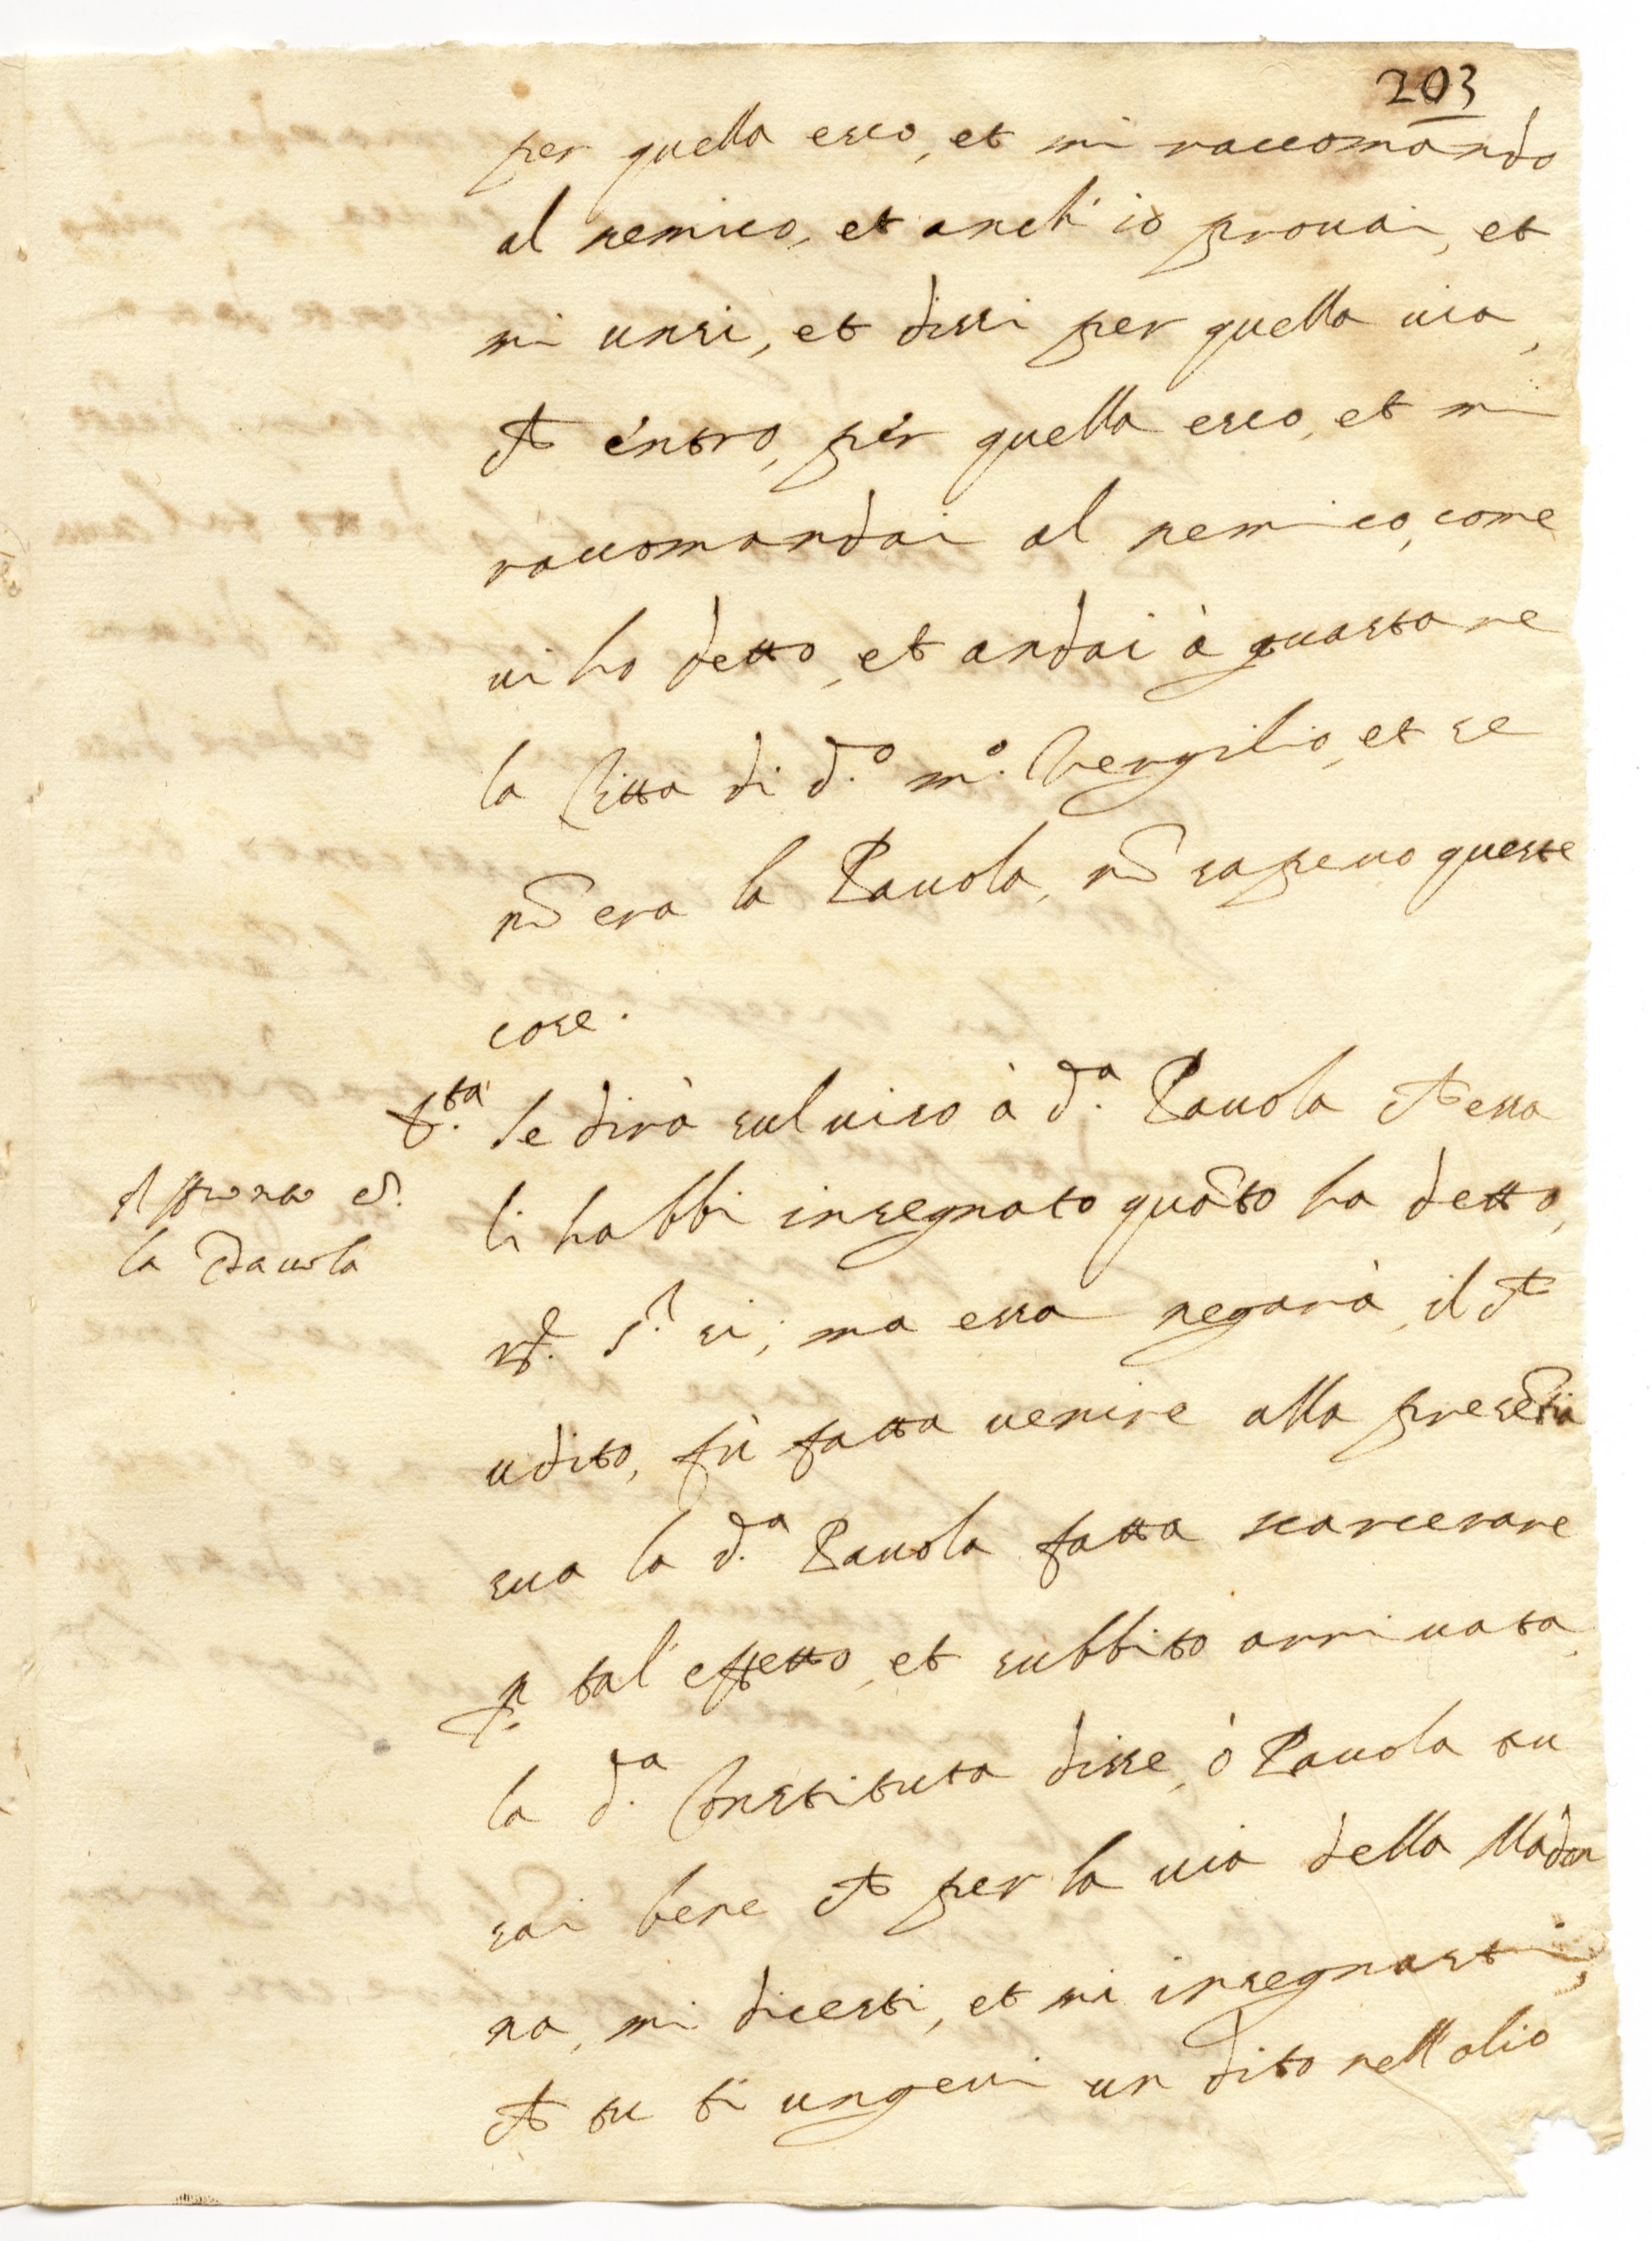 203
per quella esco, et mi raccomando
al nemico, et anch' io prouai, et
mi unsi, et dissi per quella uia,
ch entro, per quella esco, et mi
raccomandai al nemico, come
ui ho detto, et andai à guastare
la Citta di d.o m.o Vergilio, et se
nō era la Pauola, nō sapeuo queste
cose.
Se dirà sul uiso à d.a Pauola ch essa
li habbi insegnato quāto ha detto,
Affronto cō.
la Pauola
R. S.r si, ma essa negarà, il ch
udito, fù fatta uenire alla presētia
sua la d.a Pauola fatta scarcerare
p. tal' effetto, et subbito arriuata
la d.a Constituta disse, ò Pauola tu
sai bene ch per la uia della Madon
na, mi dicesti, et mi insegnasti,
ch tu ti ungeui un dito nell' olio